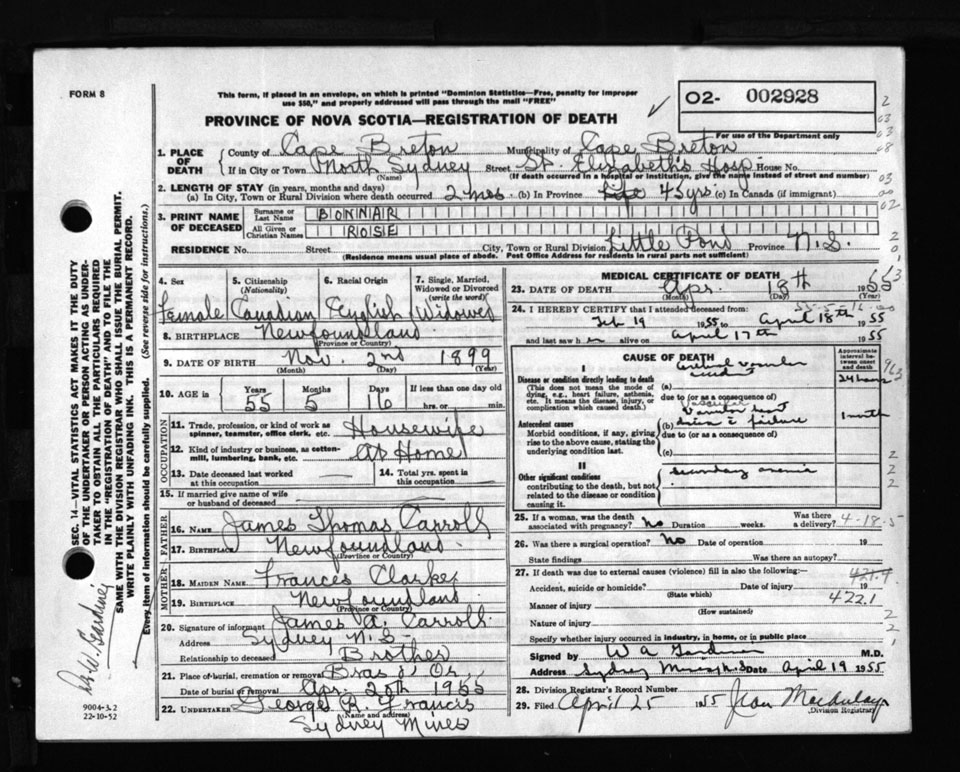 FORM 8
This form, if placed in an envelope, on which is printed "Dominion Statistics—Free, penalty for improper
use $50," and properly addressed will pass through the mail "FREE"
02- 002928
PROVINCE OF NOVA SCOTIA—REGISTRATION OF DEATH
For use of the Department only
1. PLACE OF DEATH
County of Cape Breton Municipality of Cape Breton
If in City or Town North Sydney Street St. Elizabeth's Hosp. House No.
(Name) (If death occurred in a hospital or institution, give the name instead of street and number)
2. LENGTH OF STAY (in years, months and days)
(a) In City, Town or Rural Division where death occurred 2 mos. (b) In Province Life 45 yrs (c) In Canada (if immigrant)
3. PRINT NAME OF DECEASED
Surname or Last Name BONNAR
All Given or Christian Names ROSE
RESIDENCE No. Street City, Town or Rural Division Little Pond Province N.S.
(Residence means usual place of abode. Post Office Address for residents in rural parts not sufficient)
4. Sex 5. Citizenship (Nationality) 6. Racial Origin 7. Single, Married, Widowed or Divorced (write the word)
Female Canadian English Widowed
8. BIRTHPLACE Newfoundland
(Province or Country)
9. DATE OF BIRTH Nov. 2nd 1899
(Month) (Day) (Year)
10. AGE in Years Months Days If less than one day old
55 5 16 hrs. or min.
OCCUPATION
11. Trade, profession, or kind of work as spinner, teamster, office clerk, etc. Housewife
12. Kind of industry or business, as cotton-mill, lumbering, bank, etc. At Home
13. Date deceased last worked at this occupation
14. Total yrs. spent in this occupation
15. If married give name of wife or husband of deceased
FATHER
16. NAME James Thomas Carroll
17. BIRTHPLACE Newfoundland
(Province or Country)
MOTHER
18. MAIDEN NAME Frances Clarke
19. BIRTHPLACE Newfoundland
(Province or Country)
20. Signature of informant James A. Carroll
Address Sydney N.S.
Relationship to deceased Brother
21. Place of burial, cremation or removal Bras d'Or
Date of burial or removal Apr. 20th 1955
22. UNDERTAKER George R. Francis
(Name and address)
Sydney Mines
MEDICAL CERTIFICATE OF DEATH
23. DATE OF DEATH Apr. 18th 1955
(Month) (Day) (Year)
24. I HEREBY CERTIFY that I attended deceased from:
Feb 19 1955 to April 18th 1955
and last saw h alive on April 17th 1955
CAUSE OF DEATH
Approximate interval between onset and death
I
Disease or condition directly leading to death
(This does not mean the mode of dying, e.g., heart failure, asthenia, etc. It means the disease, injury, or complication which caused death.)
(a)
24 hours
due to (or as a consequence of)
Antecedent causes
Morbid conditions, if any, giving rise to the above cause, stating the underlying condition last.
(b) failure
1 month
due to (or as a consequence of)
(c)
II
Other significant conditions
contributing to the death, but not related to the disease or condition causing it.
secondary anemia
25. If a woman, was the death associated with pregnancy? No Duration weeks. Was there a delivery?
4-18-5
26. Was there a surgical operation? No Date of operation 19
State findings Was there an autopsy?
27. If death was due to external causes (violence) fill in also the following:—
Accident, suicide or homicide? Date of injury 19
(State which)
422.1
Manner of injury
(How sustained)
Nature of injury
Specify whether injury occurred in industry, in home, or in public place
Signed by W A Gardiner M.D.
Address Sydney Mines N.S. Date April 19 1955
28. Division Registrar's Record Number
29. Filed April 25 1955
Division Registrar
SEC. 14—VITAL STATISTICS ACT MAKES IT THE DUTY
OF THE UNDERTAKER OR PERSON ACTING AS UNDER-
TAKER TO OBTAIN ALL THE PARTICULARS REQUIRED
IN THE "REGISTRATION OF DEATH" AND TO FILE THE
SAME WITH THE DIVISION REGISTRAR WHO SHALL ISSUE THE BURIAL PERMIT.
WRITE PLAINLY WITH UNFADING INK. THIS IS A PERMANENT RECORD.
Every item of information should be carefully supplied. (See reverse side for instructions.)
9004-3.2
22-10-52